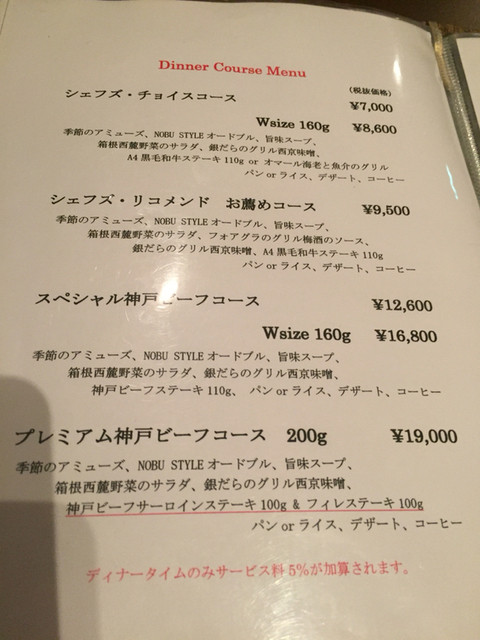 Dinner Course Menu
(税抜価格)
シェフズ・チョイスコース ¥7,000
Wsize 160g ¥8,600
季節のアミューズ、NOBU STYLEオードブル、旨味スープ、
箱根西麓野菜のサラダ、銀だらのグリル西京味噌、
A4黒毛和牛ステーキ110g or オマール海老と魚介のグリル
パン or ライス、デザート、コーヒー
シェフズ・リコメンド お薦めコース ¥9,500
季節のアミューズ、NOBU STYLEオードブル、旨味スープ、
箱根西麓野菜のサラダ、フォアグラのグリル梅酒のソース、
銀だらのグリル西京味噌、A4黒毛和牛ステーキ110g
パン or ライス、デザート、コーヒー
スペシャル神戸ビーフコース ¥12,600
Wsize 160g ¥16,800
季節のアミューズ、NOBU STYLEオードブル、旨味スープ、
箱根西麓野菜のサラダ、銀だらのグリル西京味噌、
神戸ビーフステーキ110g、 パン or ライス、デザート、コーヒー
プレミアム神戸ビーフコース 200g ¥19,000
季節のアミューズ、NOBU STYLEオードブル、旨味スープ、
箱根西麓野菜のサラダ、銀だらのグリル西京味噌、
神戸ビーフサーロインステーキ100g & フィレステーキ100g
パン or ライス、デザート、コーヒー
ディナータイムのみサービス料5%が加算されます。